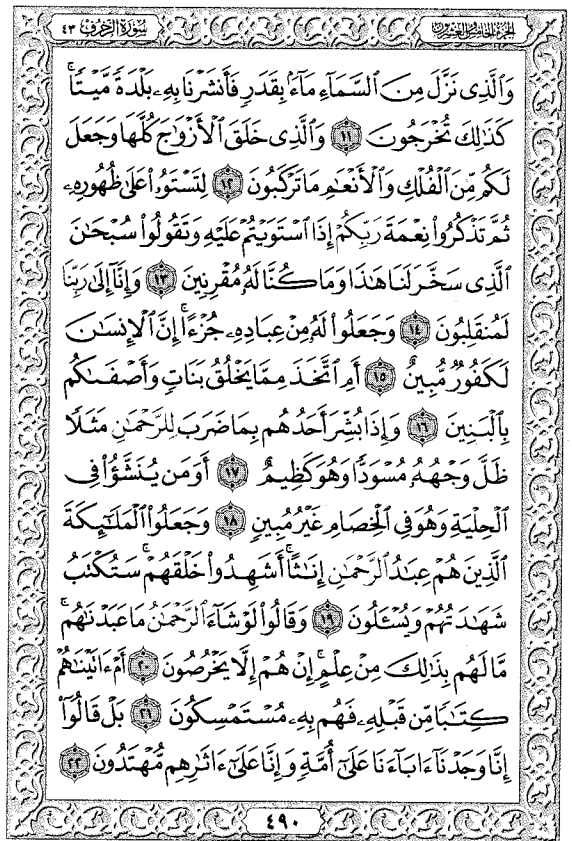 الجزء الخامس والعشرون
سورة الزخرف ٤٣
وَالَّذِى نَزَّلَ مِنَ السَّمَآءِ مَآءًۢ بِقَدَرٍ فَأَنشَرْنَا بِهِۦ بَلْدَةً مَّيْتًاۚ
كَذَٰلِكَ تُخْرَجُونَ ١١ وَالَّذِى خَلَقَ الْأَزْوَٰجَ كُلَّهَا وَجَعَلَ
لَكُم مِّنَ الْفُلْكِ وَالْأَنْعَٰمِ مَا تَرْكَبُونَ ١٢ لِتَسْتَوُۥا۟ عَلَىٰ ظُهُورِهِۦ
ثُمَّ تَذْكُرُوا۟ نِعْمَةَ رَبِّكُمْ إِذَا اسْتَوَيْتُمْ عَلَيْهِ وَتَقُولُوا۟ سُبْحَٰنَ
الَّذِى سَخَّرَ لَنَا هَٰذَا وَمَا كُنَّا لَهُۥ مُقْرِنِينَ ١٣ وَإِنَّآ إِلَىٰ رَبِّنَا
لَمُنقَلِبُونَ ١٤ وَجَعَلُوا۟ لَهُۥ مِنْ عِبَادِهِۦ جُزْءًاۚ إِنَّ الْإِنسَٰنَ
لَكَفُورٌ مُّبِينٌ ١٥ أَمِ اتَّخَذَ مِمَّا يَخْلُقُ بَنَاتٍ وَأَصْفَىٰكُم
بِالْبَنِينَ ١٦ وَإِذَا بُشِّرَ أَحَدُهُم بِمَا ضَرَبَ لِلرَّحْمَٰنِ مَثَلًا
ظَلَّ وَجْهُهُۥ مُسْوَدًّا وَهُوَ كَظِيمٌ ١٧ أَوَمَن يُنَشَّؤُا۟ فِى
الْحِلْيَةِ وَهُوَ فِى الْخِصَامِ غَيْرُ مُبِينٍ ١٨ وَجَعَلُوا۟ الْمَلَٰٓئِكَةَ
الَّذِينَ هُمْ عِبَٰدُ الرَّحْمَٰنِ إِنَٰثًاۚ أَشَهِدُوا۟ خَلْقَهُمْۚ سَتُكْتَبُ
شَهَٰدَتُهُمْ وَيُسْـَٔلُونَ ١٩ وَقَالُوا۟ لَوْ شَآءَ الرَّحْمَٰنُ مَا عَبَدْنَٰهُمۚ
مَّا لَهُم بِذَٰلِكَ مِنْ عِلْمٍۖ إِنْ هُمْ إِلَّا يَخْرُصُونَ ٢٠ أَمْ ءَاتَيْنَٰهُمْ
كِتَٰبًا مِّن قَبْلِهِۦ فَهُم بِهِۦ مُسْتَمْسِكُونَ ٢١ بَلْ قَالُوٓا۟
إِنَّا وَجَدْنَآ ءَابَآءَنَا عَلَىٰٓ أُمَّةٍ وَإِنَّا عَلَىٰٓ ءَاثَٰرِهِم مُّهْتَدُونَ ٢٢
٤٩٠